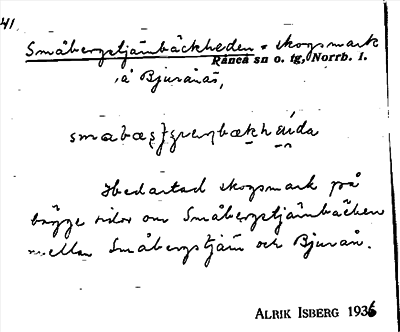 41.
Småbergstjärnbäckheden = skogsmark
Råneå sn o. tg, Norrb. l.
å Bjurånäs,
Hedartad skogsmark på
bägge sidor om Småbergstjärnbäcken
mellan Småbergstjärn och Bjurån.
ALRIK ISBERG 1936